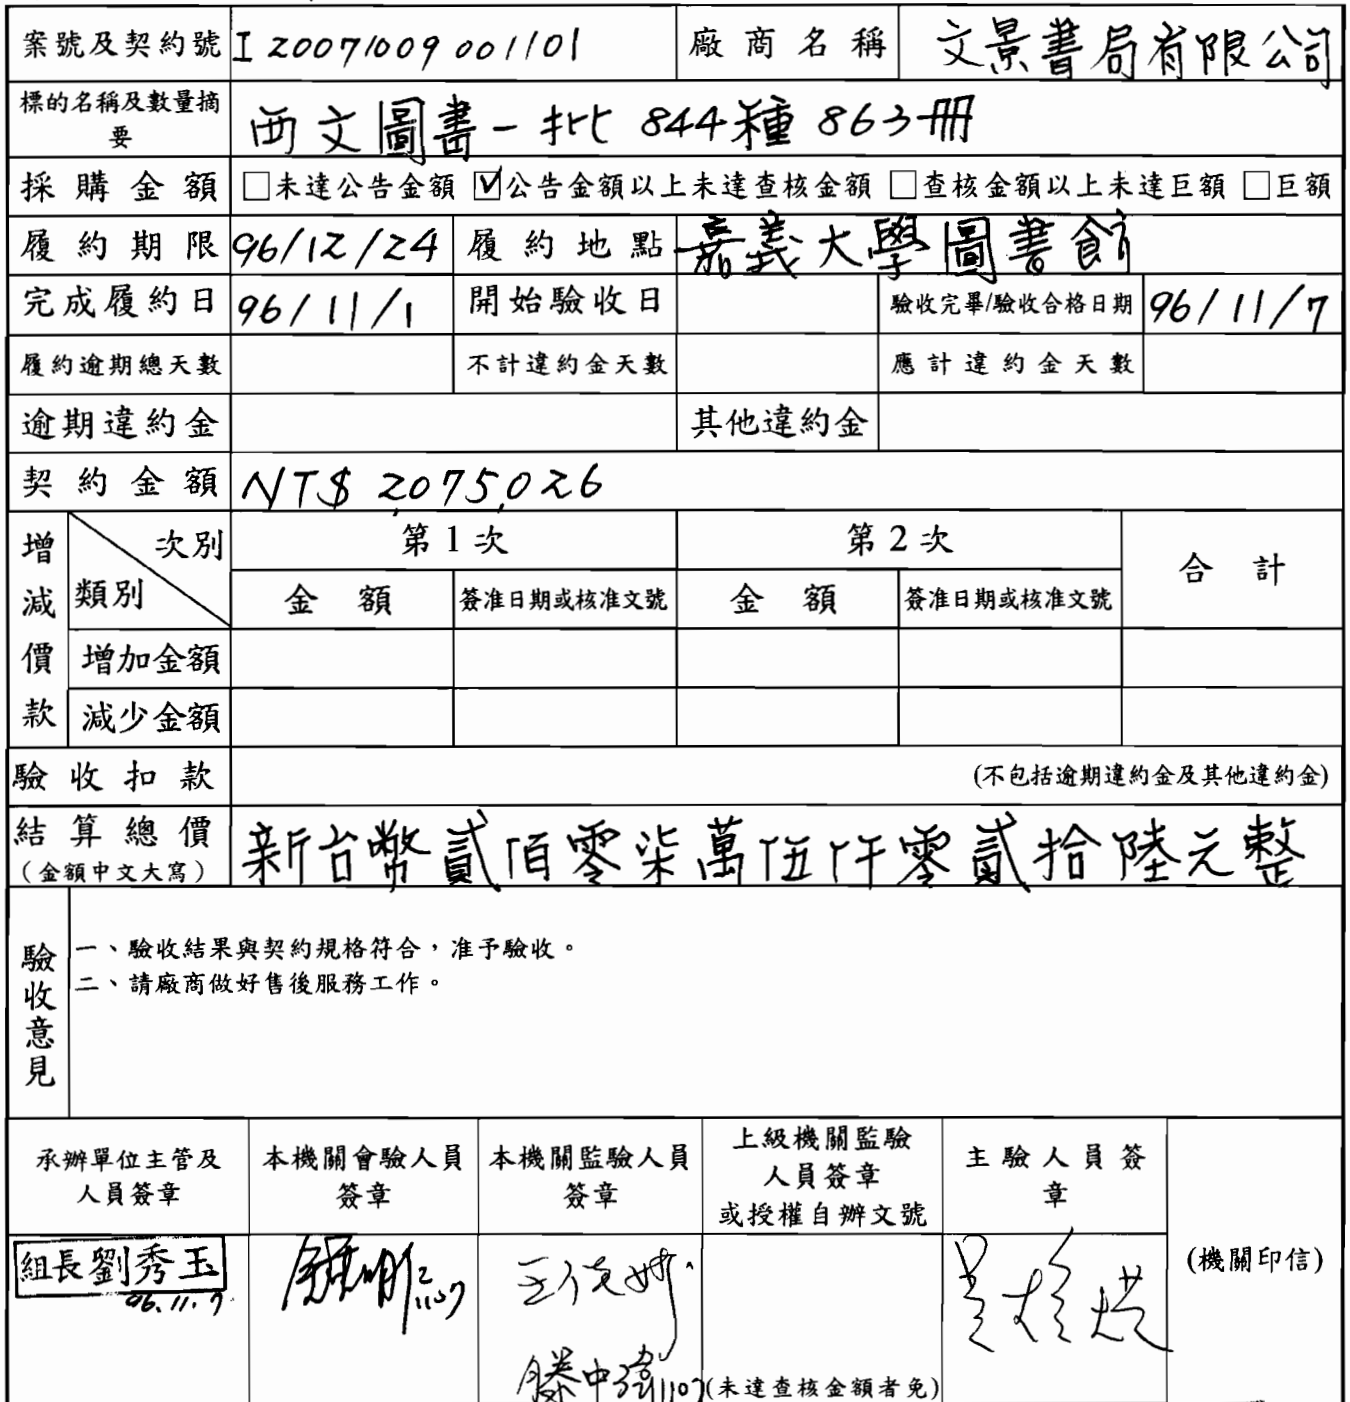 案號及契約號 I20071009001101 廠商名稱 文景書局有限公司
標的名稱及數量摘要 西文圖書一批 844種 863冊
採購金額 □未達公告金額 ☑公告金額以上未達查核金額 □查核金額以上未達巨額 □巨額
履約期限 96/12/24 履約地點 嘉義大學圖書館
完成履約日 96/11/1 開始驗收日 驗收完畢/驗收合格日期 96/11/7
履約逾期總天數 不計違約金天數 應計違約金天數
逾期違約金 其他違約金
契約金額 NT$ 2,075,026
增減價款 次別 類別 第1次 第2次 合計
金額 簽准日期或核准文號 金額 簽准日期或核准文號
增加金額
減少金額
驗收扣款 (不包括逾期違約金及其他違約金)
結算總價 新台幣貳佰零柒萬伍仟零貳拾陸元整
(金額中文大寫)
驗收意見
一、驗收結果與契約規格符合，准予驗收。
二、請廠商做好售後服務工作。
承辦單位主管及人員簽章 本機關會驗人員簽章 本機關監驗人員簽章 上級機關監驗人員簽章或授權自辦文號 主驗人員簽章
(機關印信)
組長劉秀玉
96.11.7
1107
滕中瑋1107
(未達查核金額者免)